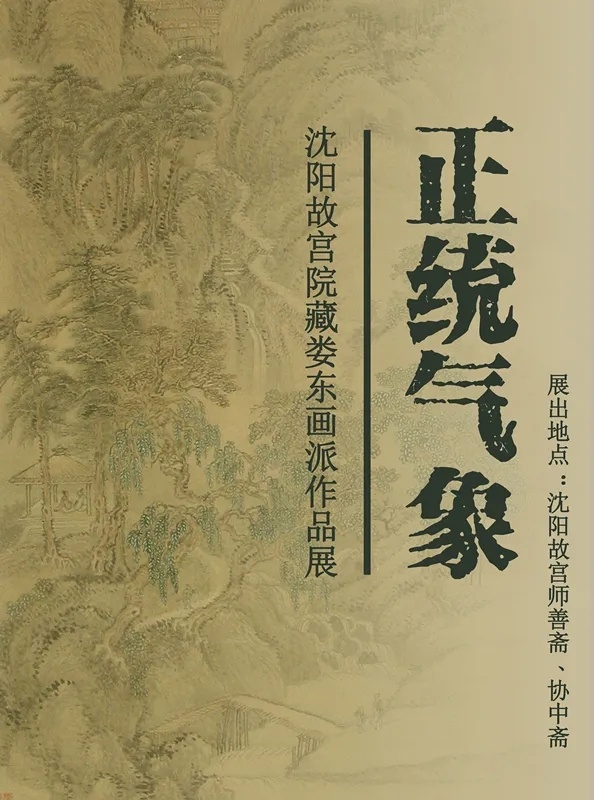 展出地点：沈阳故宫师善斋、协中斋
正统气象
沈阳故宫院藏娄东画派作品展